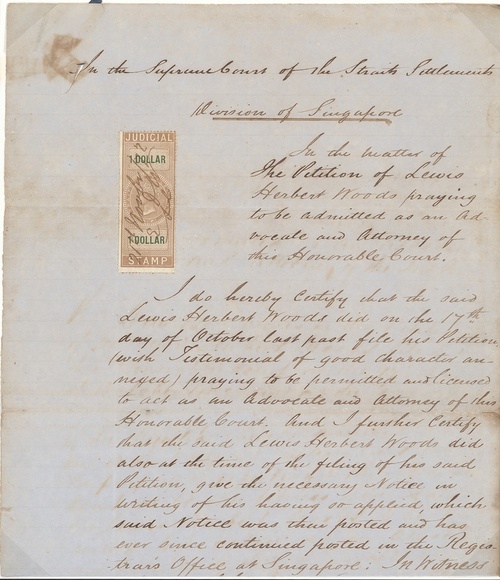 In the Supreme Court of the Straits Settlements
Division of Singapore
JUDICIAL
1 DOLLAR
1 DOLLAR
STAMP
In the matter of
The Petition of Lewis
Herbert Woods praying
to be admitted as an Ad-
vocate and Attorney of
this Honorable Court.
I do hereby certify that the said
Lewis Herbert Woods did on the 17th
day of October last past file his Petition
(with Testimonial of good character an-
nexed) praying to be permitted and licensed
to act as an Advocate and Attorney of this
Honorable Court. And I further Certify
that the said Lewis Herbert Woods did
also at the time of the filing of his said
Petition, give the necessary Notice in
writing of his having so applied, which
said Notice was then posted and has
ever since continued posted in the Regis-
trars Office at Singapore: In Witness